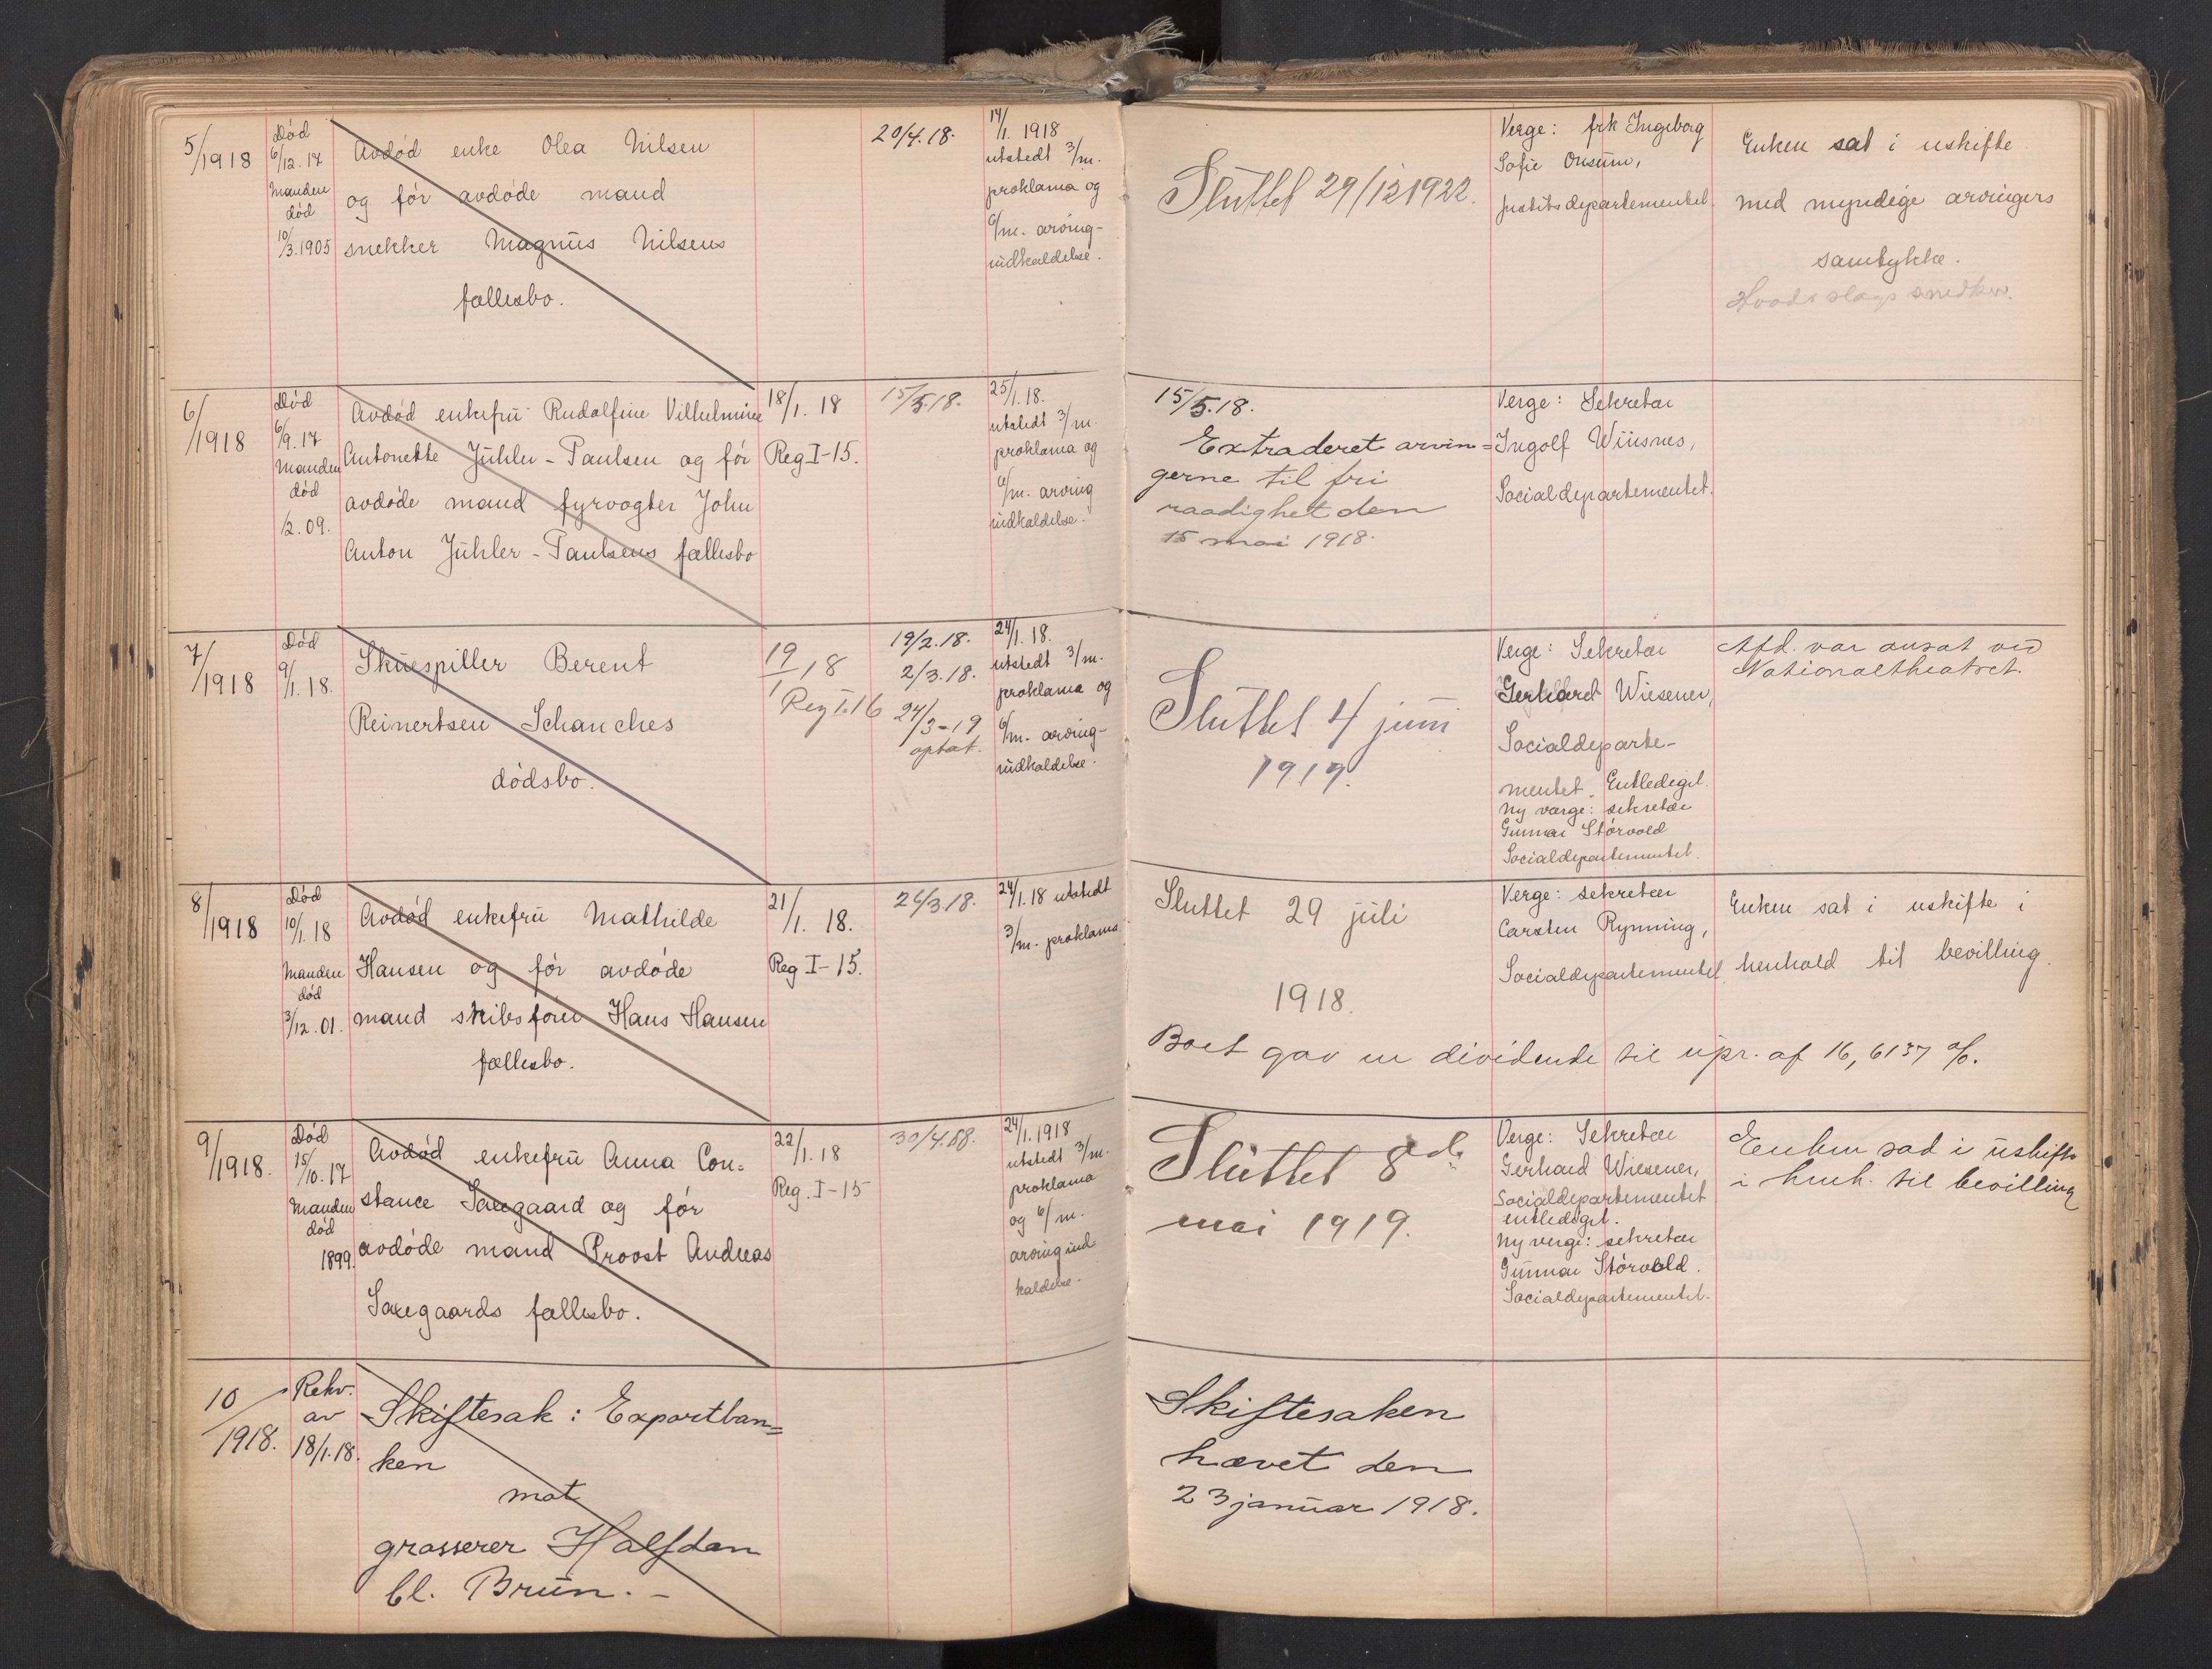 5/1918
Død
6/12.17
Manden
død
10/3.1905
Avdød enke Olea Nilsen
og før avdøde mand
snekker Magnus Nilsens
fællesbo.
20/4.18.
14/1. 1918
utstedt 3/m.
proklama og
6/m. arving-
indkaldelse.
Sluttet 29/12 1922.
Verge: frk Ingeborg
Sofie Onsum,
Justitsdepartementet.
Enken sat i uskifte
med myndige arvingers
samtykke.
Hvads slags snedker.
6/1918
Død
6/9.17
Manden
død
1/2.09.
Avdød enkefru Rudolfine Vilhelmine
Antonette Jühler-Paulsen og før
avdøde mand fyrvogter John
Anton Jühler-Paulsens fællesbo
18/1. 18
Reg I-15.
15/5.18.
25/1.18.
utstedt 3/m.
proklama og
6/m. arving
indkaldelse.
15/5.18.
Extraderet arvin=
gerne til fri
raadighet den
15 mai 1918.
Verge: Sekretær
Ingolf Wiisnes,
Socialdepartementet.
7/1918
Død
9/1.18.
Skuespiller Berent
Reinertsen Schanches
dødsbo.
19/1 18
Reg I.16
19/2.18.
2/3.18.
24/3-19
optat.
24/1.18.
utstedt 3/m.
proklama og
6/m. arving-
indkaldelse.
Sluttet 4 juni
1919.
Verge: Sekretær
Gerhard Wiesener,
Socialdeparte-
mentet. Entlediget.
Ny værge: sekretær
Gunnar Størvold
Socialdepartementet.
Afd. var ansat ved
Nationaltheatret.
8/1918
Død
10/1.18
Manden
død
3/12.01.
Avdød enkefru Mathilde
Hansen og før avdøde
mand skibsfører Hans Hansens
fællesbo.
21/1. 18.
Reg I-15.
26/3.18.
24/1.18 utstedt
3/m. proklama
Sluttet 29 juli
1918.
Boet gav en dividende til upr. af 16,6137 %.
Verge: sekretær
Carsten Rynning,
Socialdepartementet.
Enken sat i uskifte i
henhold til bevilling.
9/1918.
Død
15/10.17
Manden
død
1899.
Avdød enkefru Anna Con=
stance Saxegaard og før
avdøde mand Provst Andreas
Saxegaards fællesbo.
22/1.18
Reg. I-15
30/4.18.
24/1.1918
utstedt 3/m.
proklama
og 6/m.
arvingind
kaldelse.
Sluttet 8de
mai 1919.
Verge: Sekretær
Gerhard Wiesener,
Socialdepartementet
entlediget.
Ny verge: sekretær
Gunnar Størvold.
Socialdepartementet.
Enken sad i uskifte
i henh. til bevilling
10/1918.
Rekv.
av
18/1.18.
Skiftesak: Exportban=
ken
mot
grosserer Halfdan
Cl. Brun. -
Skiftesaken
hævet den
23 januar 1918.